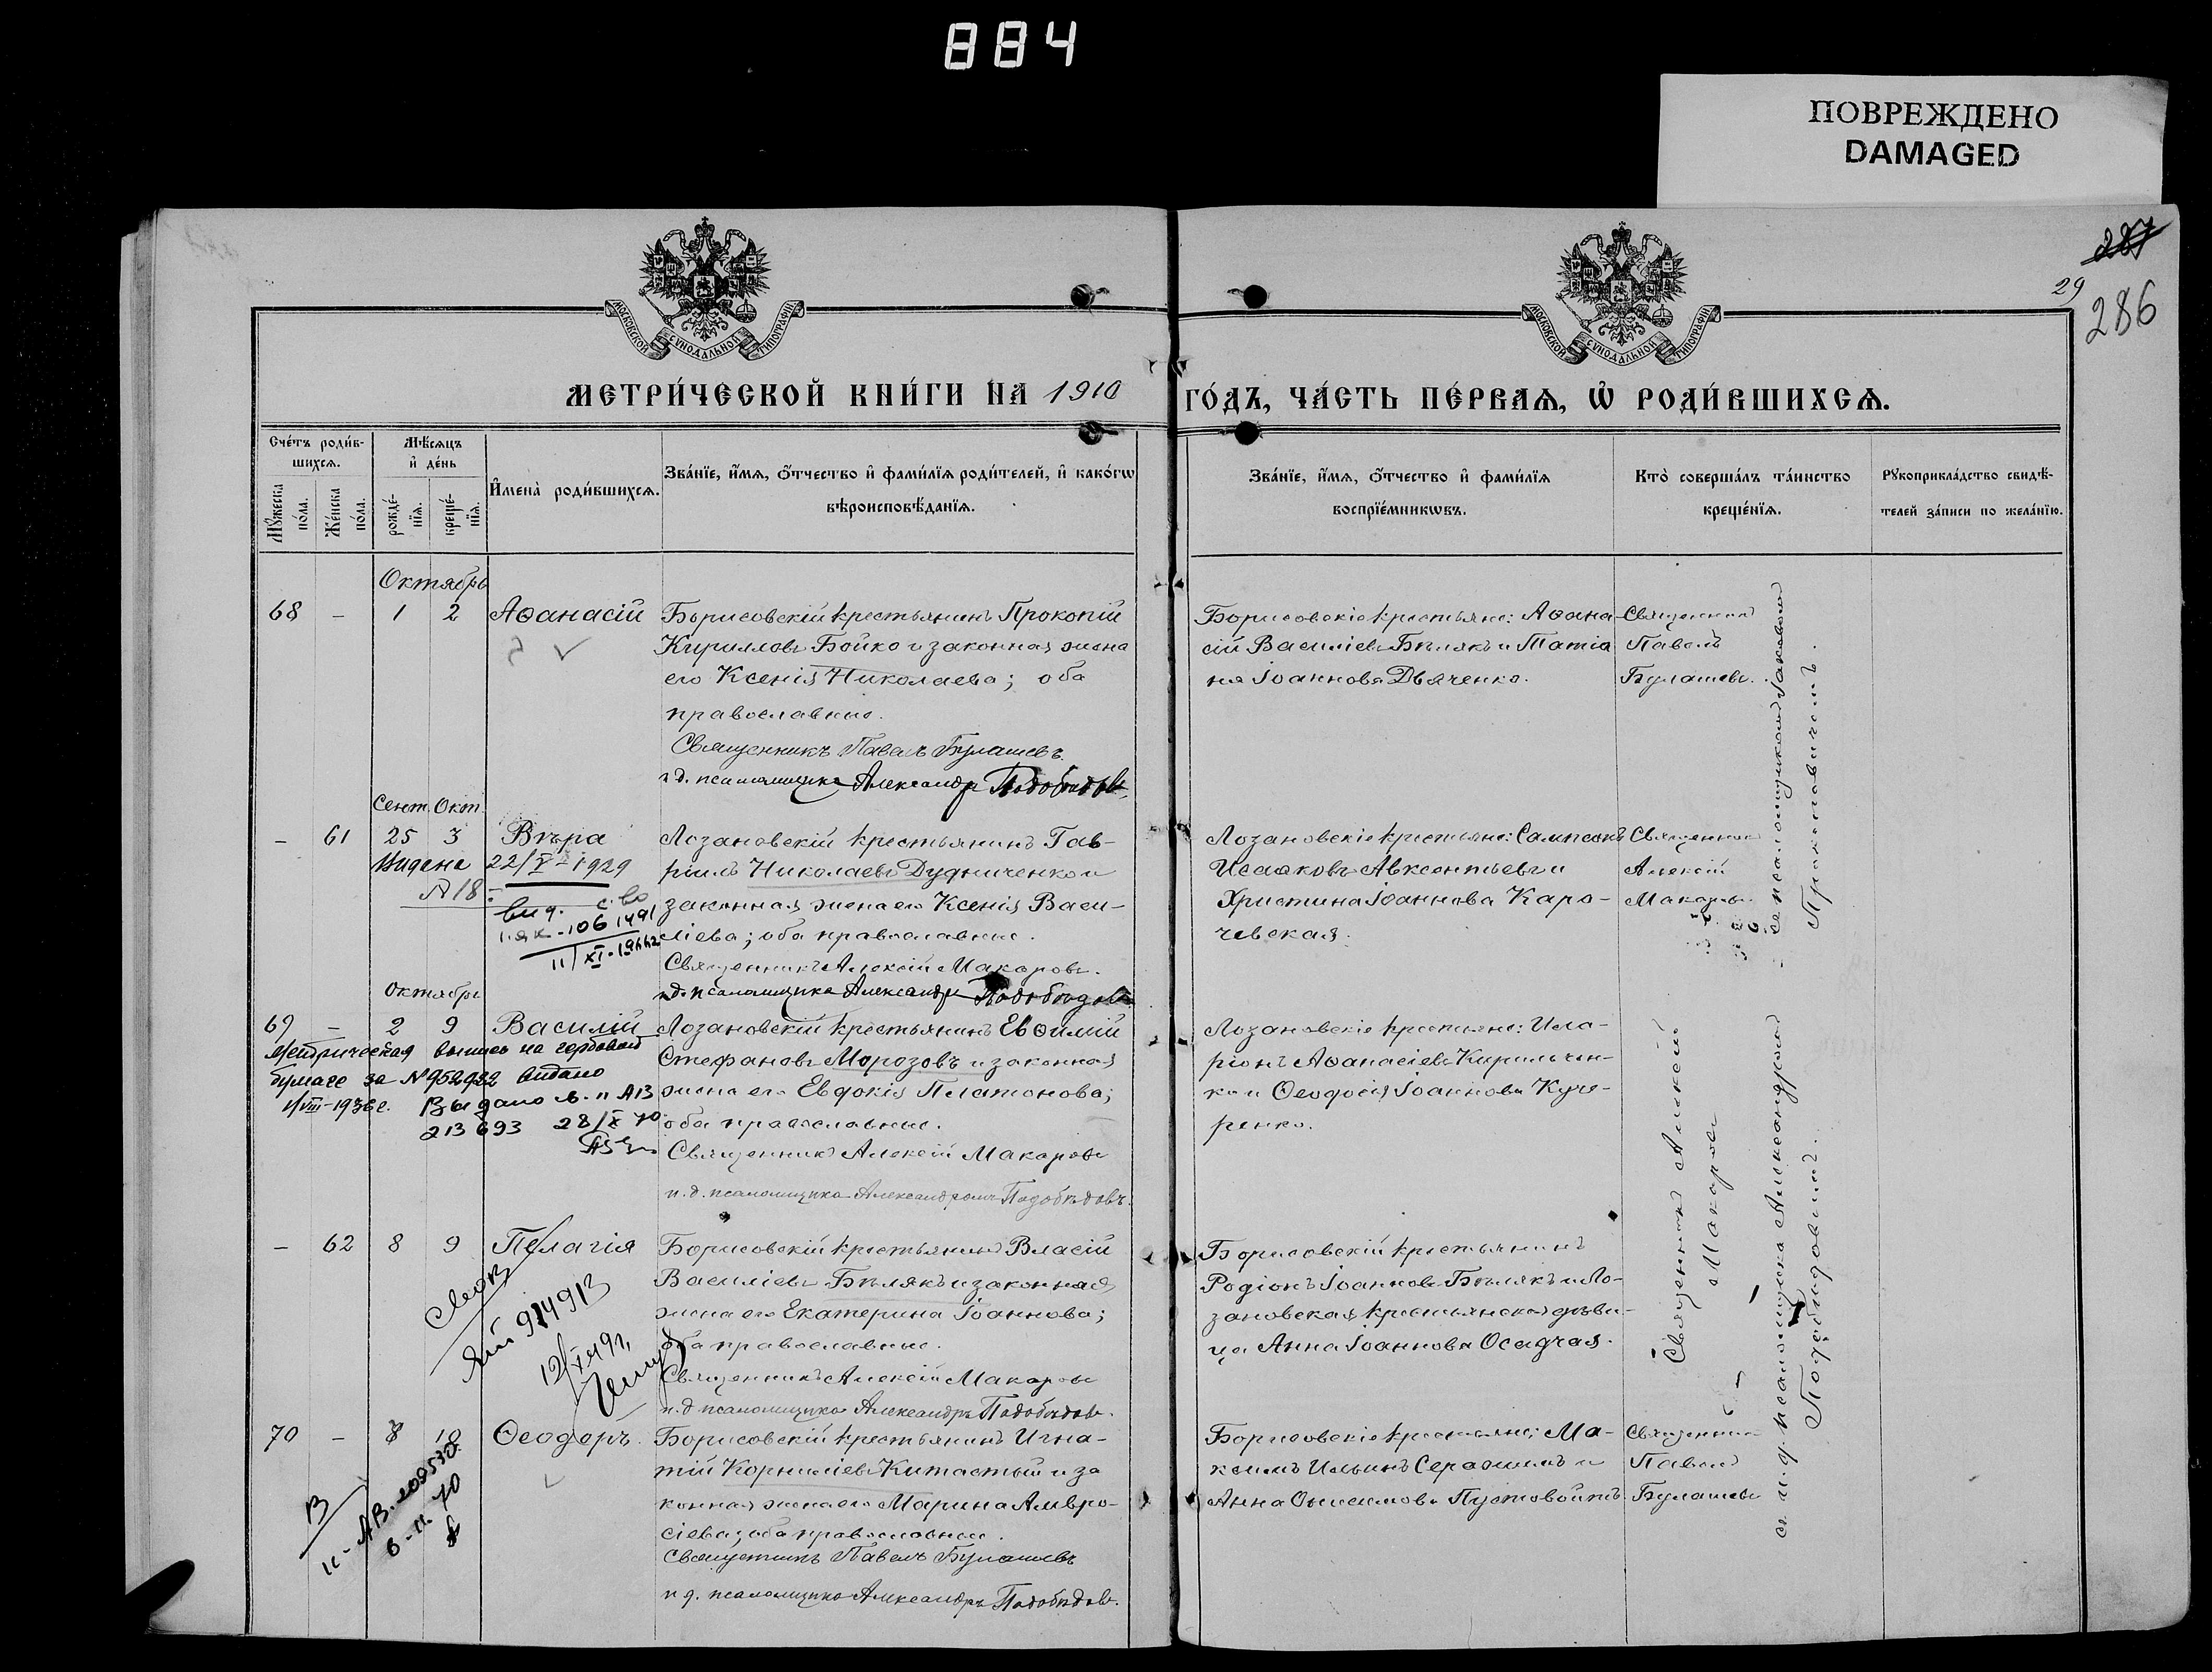 884
ПОВРЕЖДЕНО
DAMAGED
287
29
286
МОСКОВСКОЙ СѴНОДАЛЬНОЙ ТИПОГРАФІИ
МОСКОВСКОЙ СѴНОДАЛЬНОЙ ТИПОГРАФІИ
МЕТРИ́ЧЕСКОЙ КНИ́ГИ НА 1910 ГО́ДЪ, ЧА́СТЬ ПЕ́РВАѦ, Ѽ РОДИ́ВШИХСѦ.
Сче́тъ роди́вшихсѧ.
Мꙋ́жеска по́ла.
Же́нска по́ла.
Мѣ́сѧцъ и҆ де́нь
рожде́нїѧ.
креще́нїѧ.
И҆мена̀ роди́вшихсѧ.
Зва́нїе, и҆́мѧ, ѻ҆́тчество и҆ фами́лїѧ роди́телей, и҆ како́гѡ
вѣроисповѣ́данїѧ.
Зва́нїе, и҆́мѧ, ѻ҆́тчество и҆ фами́лїѧ
воспрїе́мникѡвъ.
Кто̀ соверша́лъ та́инство
креще́нїѧ.
Рꙋкоприкла́дство свидѣ́-
телей за́писи по жела́нїю.
Октябрь
68 — 1 2 Аѳанасій
Борисовскій крестьянинъ Прокопій
Кирилловъ Бойко и законная жена
его Ксенія Николаева; оба
православные.
Священникъ Павелъ Булашевъ.
и.д. псаломщика Александръ Подобѣдовъ
Борисовскіе крестьяне: Аѳана-
сій Василіевъ Бѣлякъ и Татіа
на Іоаннова Дьяченко.
Священникъ
Павелъ
Булашевъ.
Сент. Окт.
— 61 25 3 Вѣра
Видана 22/V-1929
№18
106 1491
11/XI-
Лозановскій крестьянинъ Гав-
ріилъ Николаевъ Дудниченко и
законная жена его Ксенія Васи-
ліева; оба православные.
Священникъ Алексій Макаровъ.
и.д. псаломщика Александръ Подобѣдовъ
Лозановскіе крестьяне: Сампсонъ
Исааковъ Авксентьевъ и
Христина Іоаннова Кара-
чевская.
Священникъ
Алексій
Макаровъ
Октябрь
69 — 2 9 Василій
Метрическая выпись на гербовой
бумаге за №952922 видано
1/VIII-1936г. Выдано
213693 28/X 70
Лозановскій крестьянинъ Евѳимій
Стефановъ Морозовъ и законная
жена его Евдокія Платонова;
оба православные.
Священникъ Алексій Макаровъ
и.д. псаломщика Александромъ Подобѣдовъ.
Лозановскіе крестьяне: Ила-
ріонъ Аѳанасіевъ Кирильчен-
ко и Ѳеодосія Іоаннова Куче-
ренко.
— 62 8 9 Пелагія
914913
Борисовскій крестьянинъ Власій
Василіевъ Бѣлякъ и законная
жена его Екатерина Іоаннова;
оба православные.
Священникъ Алексій Макаровъ
и.д. псаломщика Александръ Подобѣдовъ.
Борисовскій крестьянинъ
Родіонъ Іоанновъ Бѣлякъ и Ло-
зановская крестьянская дѣви-
ца Анна Іоаннова Осадчая.
Священникъ Алексій
Макаровъ
и. д. псаломщика Александромъ
Подобѣдовымъ.
70 — 8 10 Ѳеодоръ.
Борисовскій крестьянинъ Игна-
тій Корниліевъ Китастый и за
конная жена его Марина Амвро-
сіева; оба православные.
Священникъ Павелъ Булашевъ
и д. псаломщика Александръ Подобѣдовъ.
Борисовскіе крестьяне: Ма-
ксимъ Ильинъ Серафимъ и
Анна Онисимова Пустовойтъ.
Священникъ
Павелъ
Булашевъ